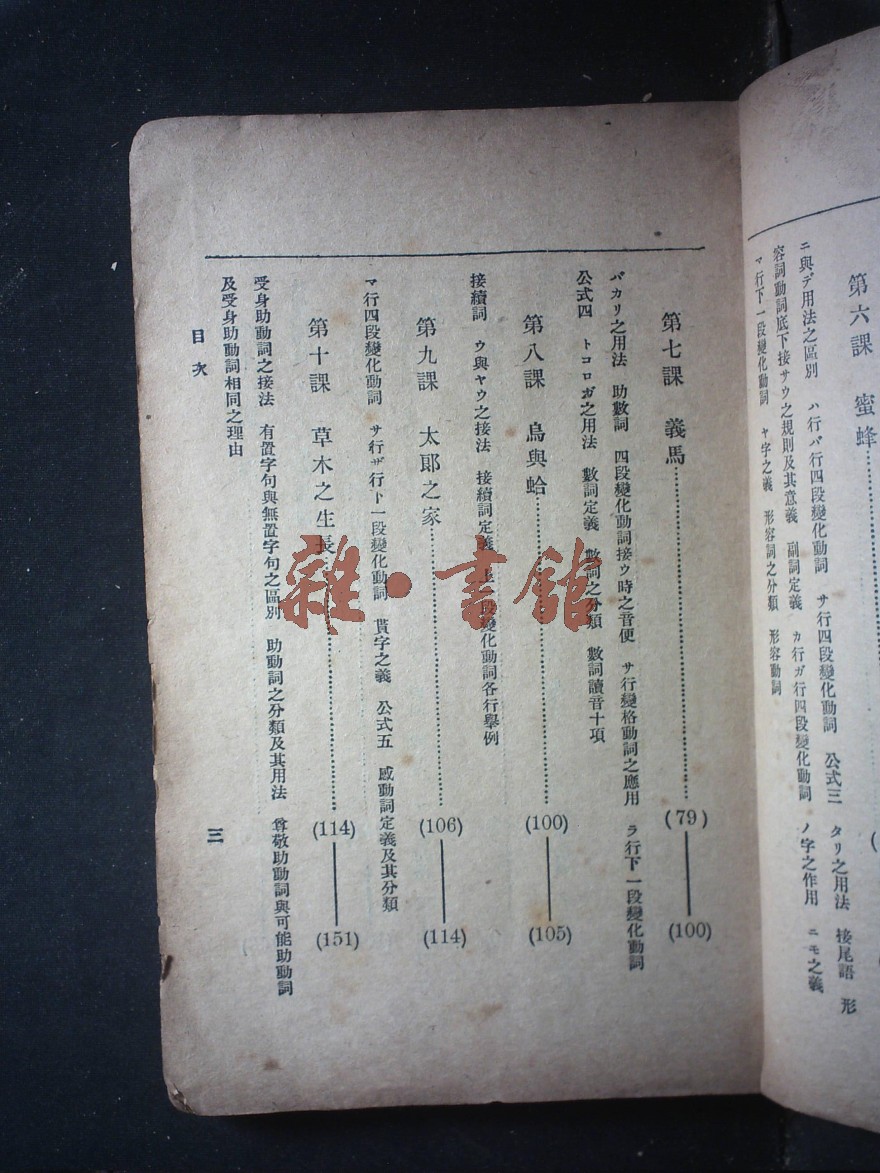 第六課　蜜蜂
ニ與デ用法之區別　ハ行バ行四段變化動詞　サ行四段變化動詞　公式三　タリ之用法　接尾語　形
容詞動詞底下接サウ之規則及其意義　副詞定義　カ行ガ行四段變化動詞　ノ字之作用　ニモ之義
マ行下一段變化動詞　ヤ字之義　形容詞之分類　形容動詞
第七課　義馬 (79) (100)
バカリ之用法　助數詞　四段變化動詞接ウ時之音便　サ行變格動詞之應用　ラ行下一段變化動詞
公式四　トコロガ之用法　數詞定義　數詞之分類　數詞讀音十項
第八課　鳥與蛤 (100) (105)
接續詞　ウ與ヤウ之接法　接續詞定義　段變化動詞各行舉例
第九課　太郎之家 (106) (114)
マ行四段變化動詞　サ行ザ行下一段變化動詞　貰字之義　公式五　感動詞定義及其分類
第十課　草木之生長 (114) (151)
受身助動詞之接法　有置字句與無置字句之區別　助動詞之分類及其用法　尊敬助動詞與可能助動詞
及受身助動詞相同之理由
目次
三
雜·書館